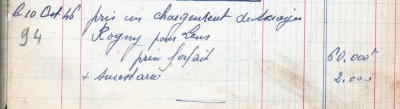 le 10 Oct 46 pris un chargement de
94 Rogny pour Lens
prix forfait 60.000 f
+ surestarie 2.000